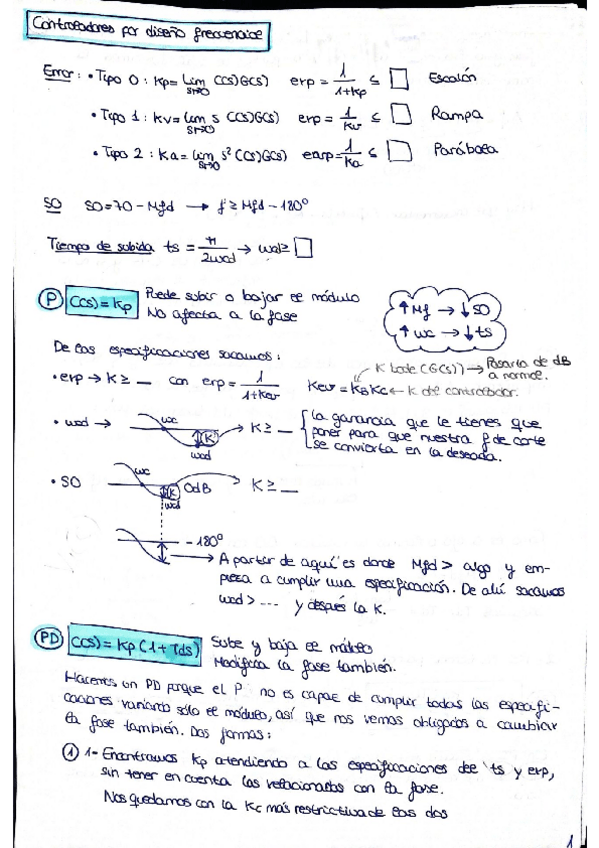 Controladores por diseño frecuencial
Error: • Tipo 0 : Kp = Lim s→0 C(s)G(s) erp = 1/(1+Kp) ≤ □ Escalón
• Tipo 1 : Kv = Lim s→0 s C(s)G(s) erp = 1/Kv ≤ □ Rampa
• Tipo 2 : Ka = Lim s→0 s² C(s)G(s) earp = 1/Ka ≤ □ Parábola
SO SO = 70 - Mfd → f ≥ Mfd - 180º
Tiempo de subida ts = π/2wcd → wcd ≥ □
P C(s) = Kp Puede subir o bajar el módulo
No afecta a la fase
↑ Mf → ↓ SO
↑ wc → ↓ ts
De las especificaciones sacamos:
K bode (G(s)) → Pasarla de dB
a normal.
• erp → K ≥ __ con erp = 1/(1+Kev) Kev = KB Kc ← K del controlador.
• wcd → wc K wcd → K ≥ __ {la ganancia que le tienes que
poner para que nuestra f de corte
se convierta en la deseada.
• SO wc K 0dB wcd K ≥ __
-180º
A partir de aquí es donde Mfd > algo y em-
pieza a cumplir una especificación. De allí sacamos
wcd > --- y después la K.
PD C(s) = Kp (1 + Tds) Sube y baja el módulo
Modifica la fase también.
Hacemos un PD porque el P no es capaz de cumplir todas las especifi-
caciones variando sólo el módulo, así que nos vemos obligados a cambiar
la fase también. Dos formas:
1 1- Encontramos Kp atendiendo a las especificaciones de ts y erp,
sin tener en cuenta las relacionadas con la fase.
Nos quedamos con la Kc más restrictiva de las dos
1